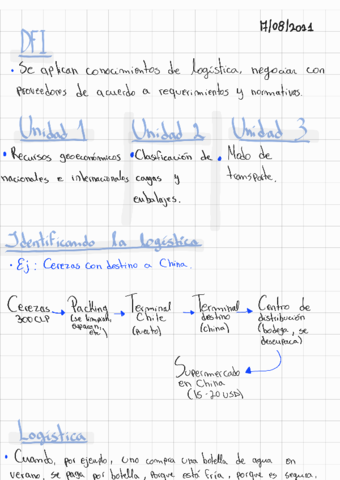 17/08/2021
DFI
• Se aplican conocimientos de logística, negociar con
proveedores de acuerdo a requerimientos y normativas.
Unidad 1 Unidad 2 Unidad 3
• Recursos geoeconómicos
nacionales e internacionales
• Clasificación de
cargas y
embalajes.
• Modo de
transporte.
Identificando la logística
• Ej: Cerezas con destino a China.
Cerezas
300 CLP
Packing
(se limpian,
separan,
etc)
Terminal
Chile
(puerto)
Terminal
destino
(china)
Centro de
distribución
(bodega, se
desempaca)
Supermercado
en China
(15-20 USD)
Logística
• Cuando, por ejemplo, uno compra una botella de agua en
verano, se paga por botella, porque está fría, porque es segura.